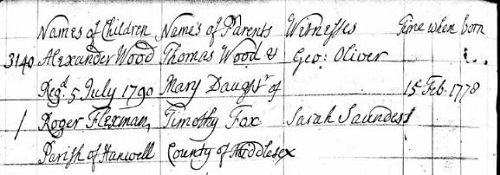 Names of Children Names of Parents Witnesses Time when born
3140 Alexander Wood Thomas Wood & Geo: Oliver
Regd. 5 July 1790 Mary Daughr of 15 Feb. 1778
/ Roger Flexman, Timothy Fox Sarah Saunders
Parish of Hanwell County of Middlesex